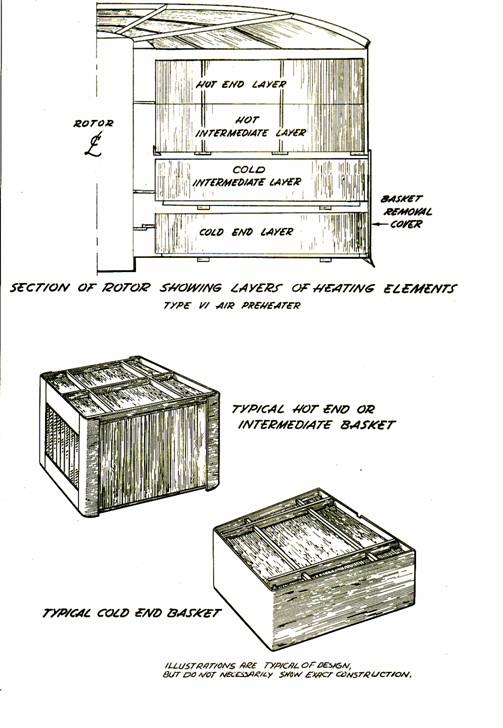 HOT END LAYER
HOT
INTERMEDIATE LAYER
ROTOR
℄
COLD
INTERMEDIATE LAYER
BASKET
REMOVAL
COVER
COLD END LAYER
SECTION OF ROTOR SHOWING LAYERS OF HEATING ELEMENTS
TYPE VI AIR PREHEATER
TYPICAL HOT END OR
INTERMEDIATE BASKET
TYPICAL COLD END BASKET
ILLUSTRATIONS ARE TYPICAL OF DESIGN,
BUT DO NOT NECESSARILY SHOW EXACT CONSTRUCTION.